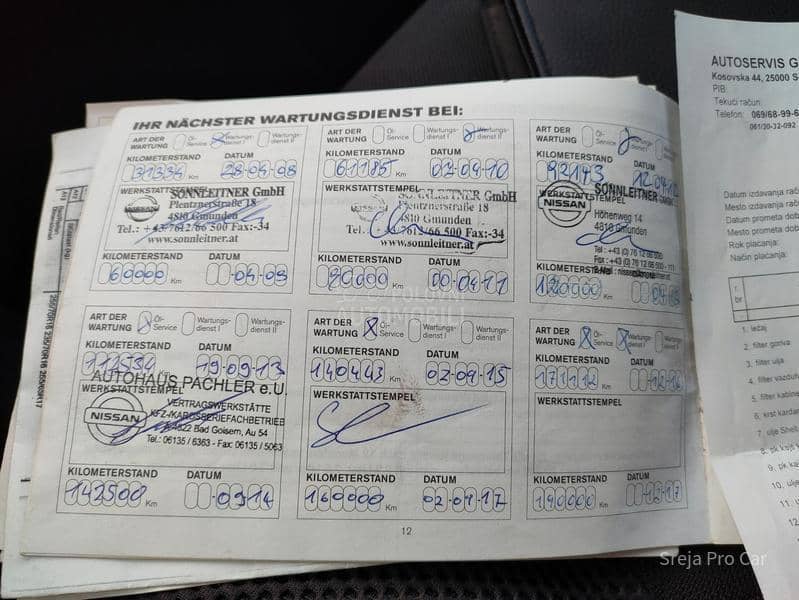 IHR NÄCHSTER WARTUNGSDIENST BEI:
ART DER WARTUNG Öl-Service Wartungs-dienst I Wartungs-dienst II
KILOMETERSTAND DATUM
31334 Km 28-04-08
WERKSTATTSTEMPEL
SONNLEITNER GmbH
Plentznerstraße 18
4810 Gmunden
Tel.: +43/7612/66 500 Fax:-34
www.sonnleitner.at
NISSAN
KILOMETERSTAND DATUM
60000 Km -04-09
ART DER WARTUNG Öl-Service Wartungs-dienst I Wartungs-dienst II
KILOMETERSTAND DATUM
61185 Km 07-04-10
WERKSTATTSTEMPEL
SONNLEITNER GmbH
Plentznerstraße 18
4810 Gmunden
66 500 Fax:-34
www.sonnleitner.at
KILOMETERSTAND DATUM
90000 Km 00-04-11
ART DER WARTUNG Öl-Service Wartungs-dienst I
KILOMETERSTAND DATUM
92143 Km 12-04-12
WERKSTATTSTEMPEL
SONNLEITNER
NISSAN
Höhenweg 14
4810 Gmunden
KILOMETERSTAND DATUM
120000 Km
ART DER WARTUNG Öl-Service Wartungs-dienst I Wartungs-dienst II
KILOMETERSTAND DATUM
112534 Km 19-09-13
AUTOHAUS PACHLER e.U.
WERKSTATTSTEMPEL
NISSAN
VERTRAGSWERKSTÄTTE
KFZ-/KAROSSERIEFACHBETRIEB
4822 Bad Goisern, Au 54
Tel.: 06135 / 6363 - Fax: 06135 / 5063
KILOMETERSTAND DATUM
142500 Km -09-14
ART DER WARTUNG Öl-Service Wartungs-dienst I Wartungs-dienst II
KILOMETERSTAND DATUM
140443 Km 02-09-15
WERKSTATTSTEMPEL
KILOMETERSTAND DATUM
160000 Km 02-01-17
ART DER WARTUNG Öl-Service Wartungs-dienst I Wartungs-dienst II
KILOMETERSTAND DATUM
171112 Km -12-16
WERKSTATTSTEMPEL
KILOMETERSTAND DATUM
190000 Km -17
12
AUTOSERVIS G
Kosovska 44, 25000 S
PIB
Tekući račun:
Telefon: 069/68-99-6
061/30-32-092
Datum izdavanja rač
Mesto izdavanja rač
Datum prometa dob
Mesto prometa dob
Rok plaćanja:
Način plaćanja:
r.
br
1. ležaj
2. filter goriva
3. filter ulja
4. filter vazduh
5. filter kabine
6. krst kardan
7. ulje Shell
9. pk
10. ulje
11. u
12.
Sreja Pro Car